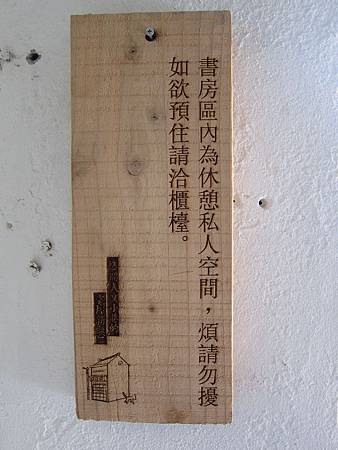 書房區內為休憩私人空間，煩請勿擾
如欲預住請洽櫃檯。